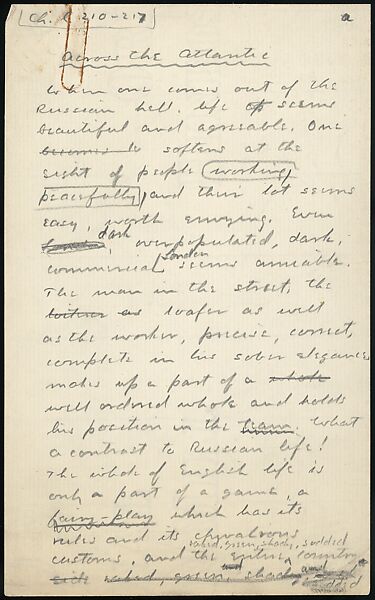 Ch. 210-217
a
Across the Atlantic
When one comes out of the
Russian hell, life seems
beautiful and agreeable. One
becomes softens at the
sight of people (working
peacefully) and their lot seems
easy, worth envying. Even
dark, overpopulated, dark,
commercial London seems amiable.
The man in the street, the
loiterer as loafer as well
as the worker, precise, correct,
complete in his sober elegance
makes up a part of a whole
well ordered whole and holds
his position in the team. What
a contrast to Russian life!
The whole of English life is
only a part of a game, a
fair-play which has its
rules and its chivalrous
raked, green, shady, sodded
customs, and the entire country
raked, green, and shady and